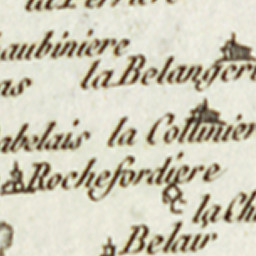 la Perriere
aubiniere
as la Belangeri
abelais la Collinier
Rochefordiere
la Ch
Belair